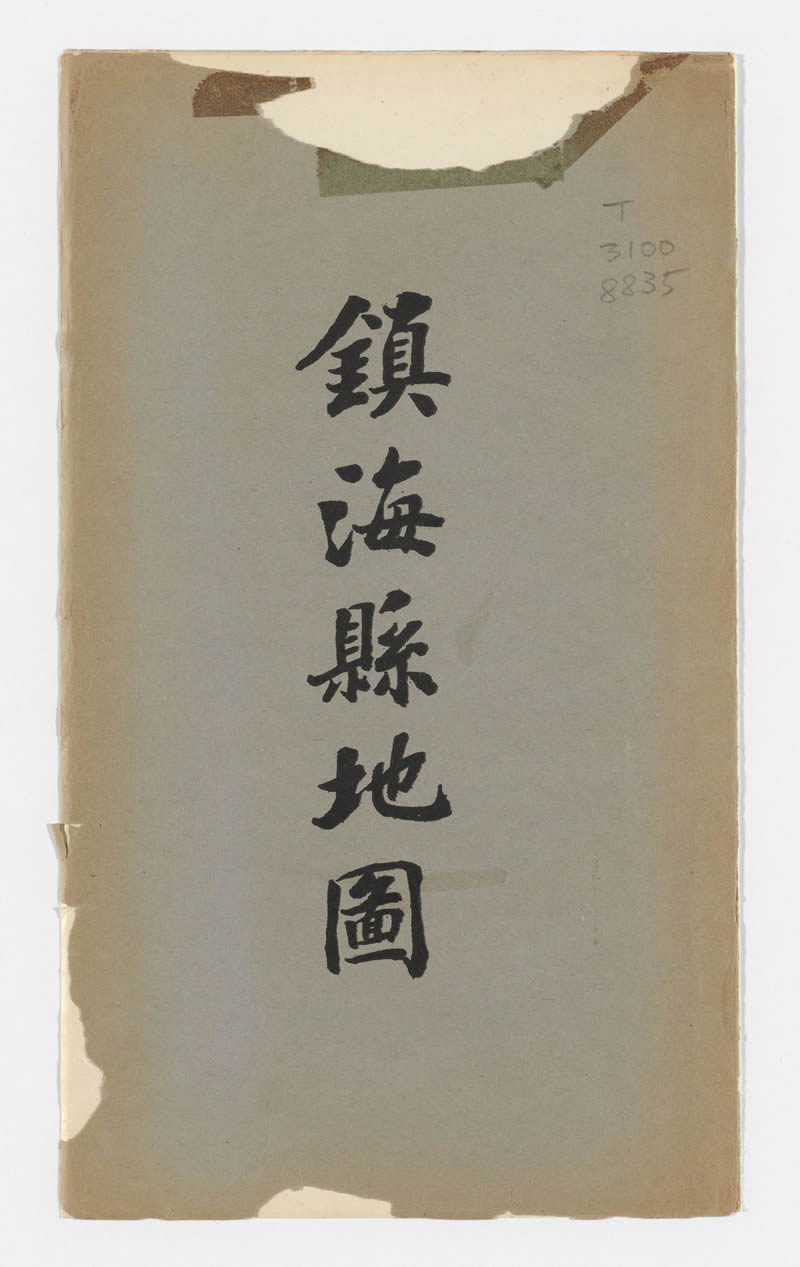 鎮海縣地圖
T
3100
8835